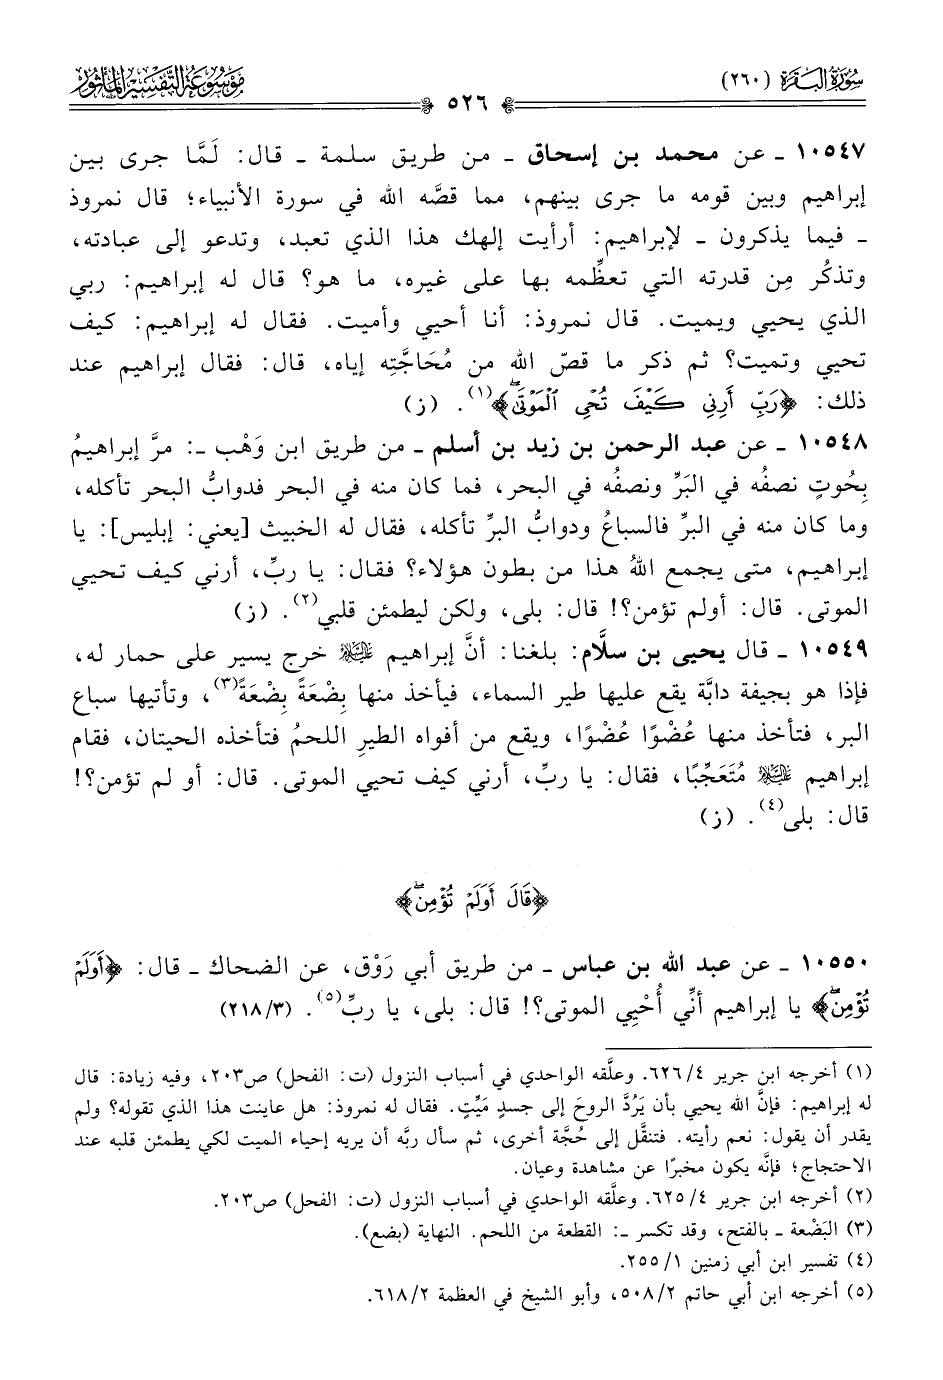 سُورَةُ البَقَرَة (٢٦٠)
مَوْسُوعَةُ التَّفْسِيرِ المَأْثُورِ
٥٢٦
١٠٥٤٧ ـ عن محمد بن إسحاق ـ من طريق سلمة ـ قال: لَمَّا جرى بين
إبراهيم وبين قومه ما جرى بينهم، مما قصَّه الله في سورة الأنبياء؛ قال نمروذ
ـ فيما يذكرون ـ لإبراهيم: أرأيت إلهك هذا الذي تعبد، وتدعو إلى عبادته،
وتذكُر مِن قدرته التي تعظِّمه بها على غيره، ما هو؟ قال له إبراهيم: ربي
الذي يحيي ويميت. قال نمروذ: أنا أحيي وأميت. فقال له إبراهيم: كيف
تحيي وتميت؟ ثم ذكر ما قصّ الله من مُحَاجَّتِه إياه، قال: فقال إبراهيم عند
ذلك: ﴿رَبِّ أَرِنِي كَيْفَ تُحْيِ الْمَوْتَىٰۖ﴾(١). (ز)
١٠٥٤٨ ـ عن عبد الرحمن بن زيد بن أسلم ـ من طريق ابن وَهْب ـ: مرَّ إبراهيمُ
بِحُوتٍ نصفُه في البَرِّ ونصفُه في البحر، فما كان منه في البحر فدوابُّ البحر تأكله،
وما كان منه في البرِّ فالسباعُ ودوابُّ البرِّ تأكله، فقال له الخبيث [يعني: إبليس]: يا
إبراهيم، متى يجمع اللهُ هذا من بطون هؤلاء؟ فقال: يا ربِّ، أرني كيف تحيي
الموتى. قال: أولم تؤمن؟! قال: بلى، ولكن ليطمئن قلبي(٢). (ز)
١٠٥٤٩ ـ قال يحيى بن سلَّام: بلغنا: أنَّ إبراهيم ﵇ خرج يسير على حمار له،
فإذا هو بجيفة دابَّة يقع عليها طير السماء، فيأخذ منها بِضْعَةً بِضْعَةً(٣)، وتأتيها سباع
البر، فتأخذ منها عُضْوًا عُضْوًا، ويقع من أفواه الطيرِ اللحمُ فتأخذه الحيتان، فقام
إبراهيم ﵇ مُتَعَجِّبًا، فقال: يا ربِّ، أرني كيف تحيي الموتى. قال: أو لم تؤمن؟!
قال: بلى(٤). (ز)
﴿قَالَ أَوَلَمْ تُؤْمِنۖ﴾
١٠٥٥٠ ـ عن عبد الله بن عباس ـ من طريق أبي رَوْق، عن الضحاك ـ قال: ﴿أَوَلَمْ
تُؤْمِنۖ﴾ يا إبراهيم أنِّي أُحْيِي الموتى؟! قال: بلى، يا ربِّ(٥). (٢١٨/٣)
(١) أخرجه ابن جرير ٤/ ٦٢٦. وعلَّقه الواحدي في أسباب النزول (ت: الفحل) ص٢٠٣، وفيه زيادة: قال
له إبراهيم: فإنَّ الله يحيي بأن يَرُدَّ الروحَ إلى جسدٍ مَيِّتٍ. فقال له نمروذ: هل عاينت هذا الذي تقوله؟ ولم
يقدر أن يقول: نعم رأيته. فتنقَّل إلى حُجَّة أخرى، ثم سأل ربَّه أن يريه إحياء الميت لكي يطمئن قلبه عند
الاحتجاج؛ فإنَّه يكون مخبرًا عن مشاهدة وعيان.
(٢) أخرجه ابن جرير ٤/ ٦٢٥. وعلَّقه الواحدي في أسباب النزول (ت: الفحل) ص٢٠٣.
(٣) البَضْعة ـ بالفتح، وقد تكسر ـ: القطعة من اللحم. النهاية (بضع).
(٤) تفسير ابن أبي زمنين ١/ ٢٥٥.
(٥) أخرجه ابن أبي حاتم ٥٠٨/٢، وأبو الشيخ في العظمة ٦١٨/٢.